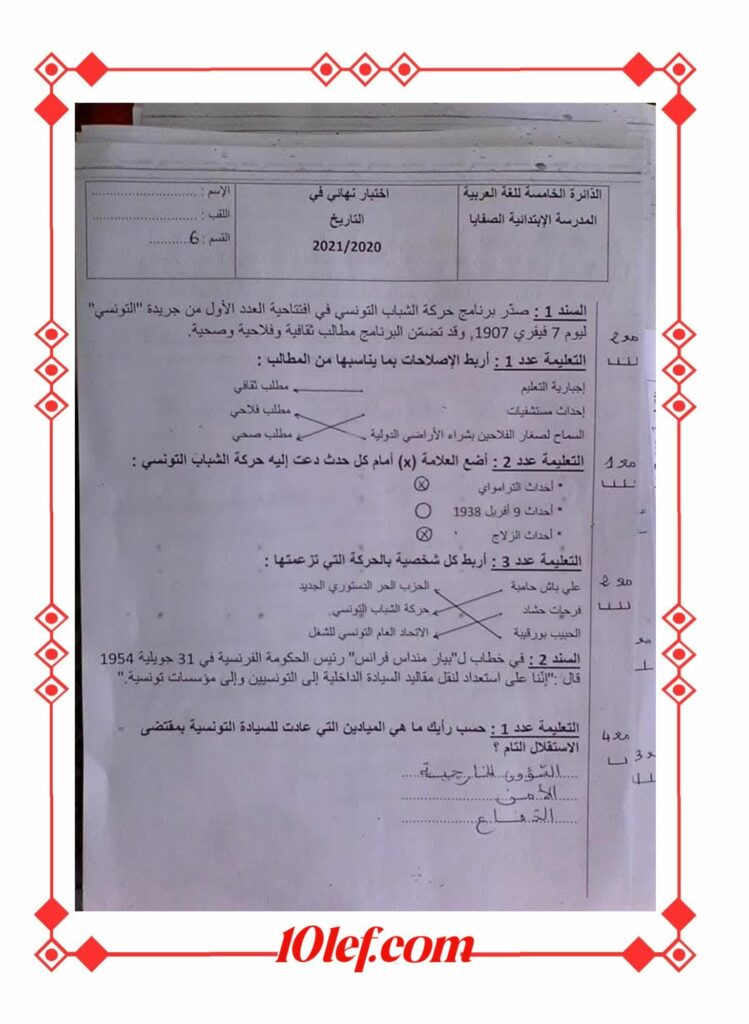 الدائرة الخامسة للغة العربية
المدرسة الإبتدائية الصفايا
اختبار نهائي في
التاريخ
2021/2020
الإسم : ....................
اللقب : ....................
القسم : 6..........
السند 1 : صدّر برنامج حركة الشباب التونسي في افتتاحية العدد الأول من جريدة "التونسي"
ليوم 7 فيفري 1907, وقد تضمّن البرنامج مطالب ثقافية وفلاحية وصحية.
مع2
التعليمة عدد 1 : أربط الإصلاحات بما يناسبها من المطالب :
إجبارية التعليم مطلب ثقافي
إحداث مستشفيات مطلب فلاحي
السماح لصغار الفلاحين بشراء الأراضي الدولية مطلب صحي
التعليمة عدد 2 : أضع العلامة (x) أمام كل حدث دعت إليه حركة الشباب التونسي :
مع1
* أحداث الترامواي x
* أحداث 9 أفريل 1938
* أحداث الزلاج x
التعليمة عدد 3 : أربط كل شخصية بالحركة التي تزعمتها :
مع2
علي باش حامبة الحزب الحر الدستوري الجديد
فرحات حشاد حركة الشباب التونسي
الحبيب بورقيبة الاتحاد العام التونسي للشغل
السند 2 : في خطاب ل"بيار منداس فرانس" رئيس الحكومة الفرنسية في 31 جويلية 1954
قال :"إنّنا على استعداد لنقل مقاليد السيادة الداخلية إلى التونسيين وإلى مؤسسات تونسية."
التعليمة عدد 1 : حسب رأيك ما هي الميادين التي عادت للسيادة التونسية بمقتضى
الاستقلال التام ؟
مع4
مع3
الشؤون الخارجية
الأمن
الدفاع
10lef.com